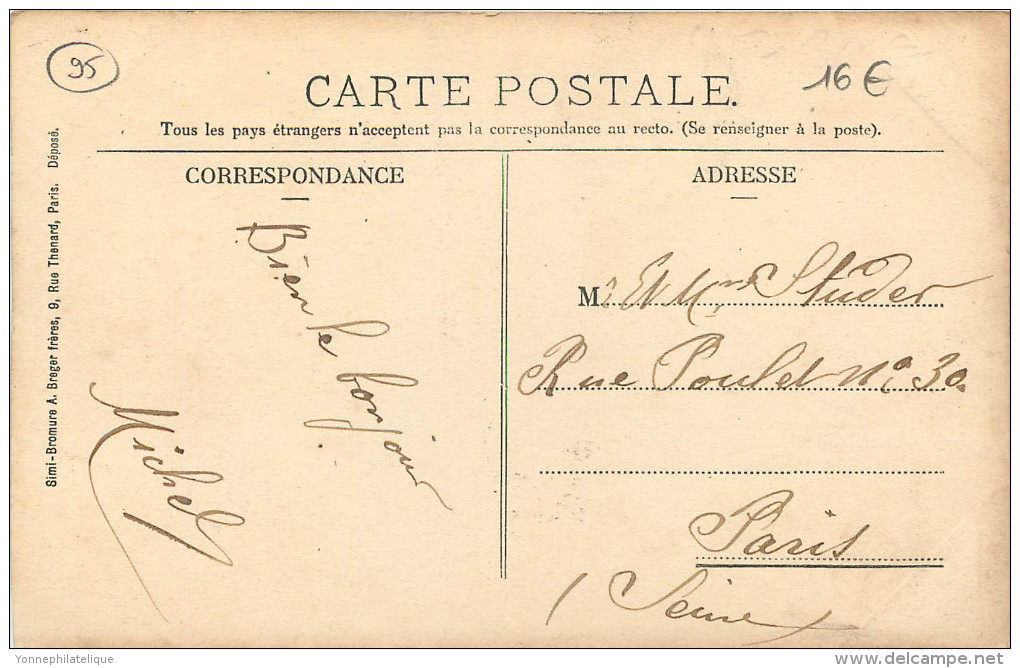 95
16 €
CARTE POSTALE.
Tous les pays étrangers n'acceptent pas la correspondance au recto. (Se renseigner à la poste).
CORRESPONDANCE
ADRESSE
Simi-Bromure A. Breger frères, 9, Rue Thenard, Paris. Déposé.
Bien le bonjour
Michel
M. Et Mme Studer
Rue Poulet No 30
Paris
(Seine)
Yonnephilatelique
delcampe.net